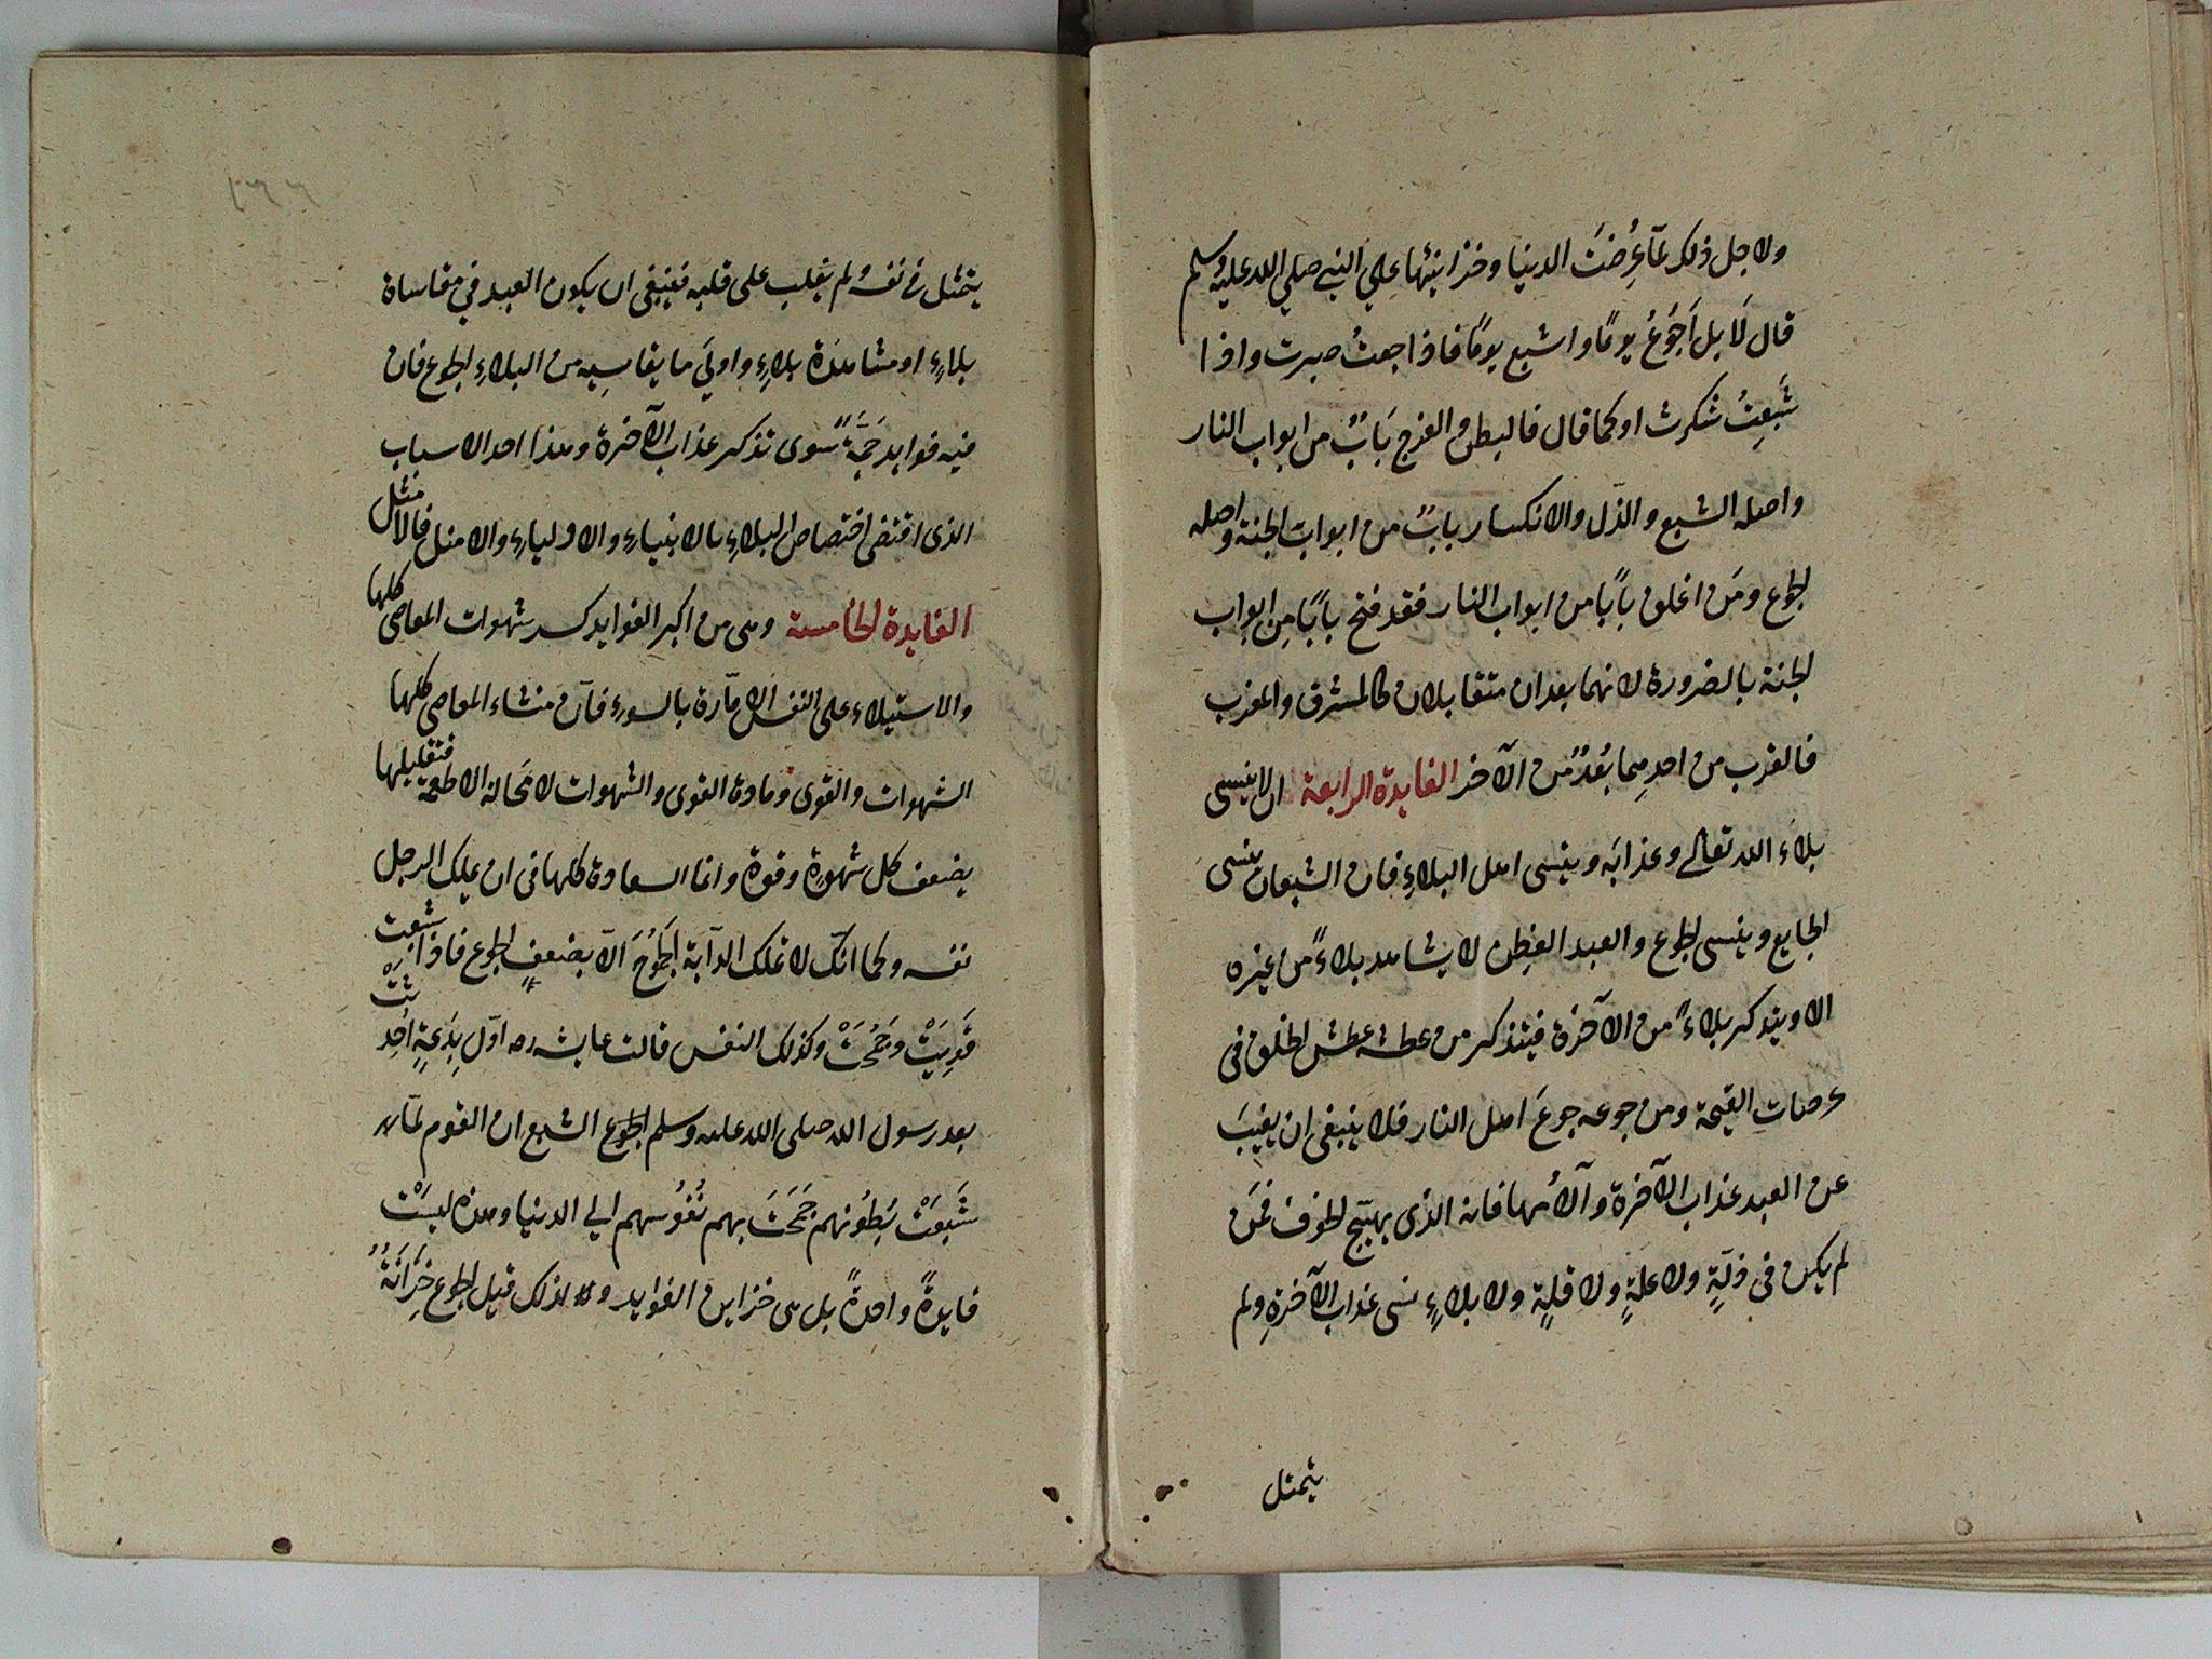 ولاجل ذلك لمّا عُرِضَتْ الدنيا وخزاينها علي النبي صلي الله عليه وسلم
قال لَا بل اَجُوْعُ يومًا واشبع يومًا فاذا جعتُ صبرت واذا
شَبِعتُ شكرت او كما قال فالبطن والفرج بَابٌ من ابواب النار
واصله الشبع والذّل والانكسار بابٌ من ابواب الجنة واصله
الجوع ومَن اغلق بابًا من ابواب النار فقد فتح بابًا مِن ابواب
الجنة بالضرورة لانهما بعدان متقابلان كالمشرق والمغرب
فالقرب من احدِهِما بُعْدٌ من الآخر الفايدة الرابعة ان لا ينسى
بلاءَ الله تعالى وعذابَه وينسى اهل البلاءِ فان الشبعان ينسى
الجايع وينسى الجوع والعبد الفطِن لا يشاهد بلاءً من غيره
الا ويتذكر بلاءً من الآخرة فيتذكر من عطشه عطش الخلق فى
عرصاتِ القيمة ومن جوعه جوعَ اهل النار فلا ينبغى ان يغيبَ
عن العبد عذاب الآخرة وآلامُها فانه الذى يهيّج الخوف فمَن
لم يكن فى ذلّةٍ ولا علةٍ ولا قلةٍ ولا بلاءٍ نسى عذاب الآخرةِ ولم
يتمثل
١٣٦
يتمثل فى نفسه ولم يغلب على قلبه فينبغى ان يكون العبد فى مقاساة
بلاءٍ او مشاهدة بلاءٍ واولَى ما يقاسِيه من البلاءِ الجوع فان
فيه فوايد جَمَّةً سوى تذكر عذاب الآخرة وهذا احد الاسباب
الذى اقتضى اختصاص البلاءِ بالانبياءِ والاولياءِ والامثل فالامثل
الفايدة الخامسة وهى من اكبر الفوايد كسر شهوات المعاصى كلها
والاستيلاء على النفس الامّارة بالسوءِ فانّ منشاء المعاصى كلها
الشهوات والقوى ومادة القوى والشهوات لا مَحَالة الاطعمة فتقليلها
يضعف كل شهوة وقوة وانما السعادة كلها فى ان يملك الرجل
نفسه وكما انّك لا تملك الدآبّة الجَمُوْحَ الّا بضعفِ الجوع فاذا شبعت
قَوِيَتْ وجَمَحَتْ وكذلك النفس قالت عايشه رض اوّل بِدْعَةٍ اُحْدِثَتْ
بعد رسول الله صلى الله عليه وسلم الشبع ان القوم لمّا
شَبِعَتْ بُطُونهم جَمَحَتْ بهم نُفُوْسهم الي الدنيا وهذه ليسَتْ
فايدةً واحدةً بل هى خزاين الفوايد ولذلك قيل الجوع خِزَانَةٌ